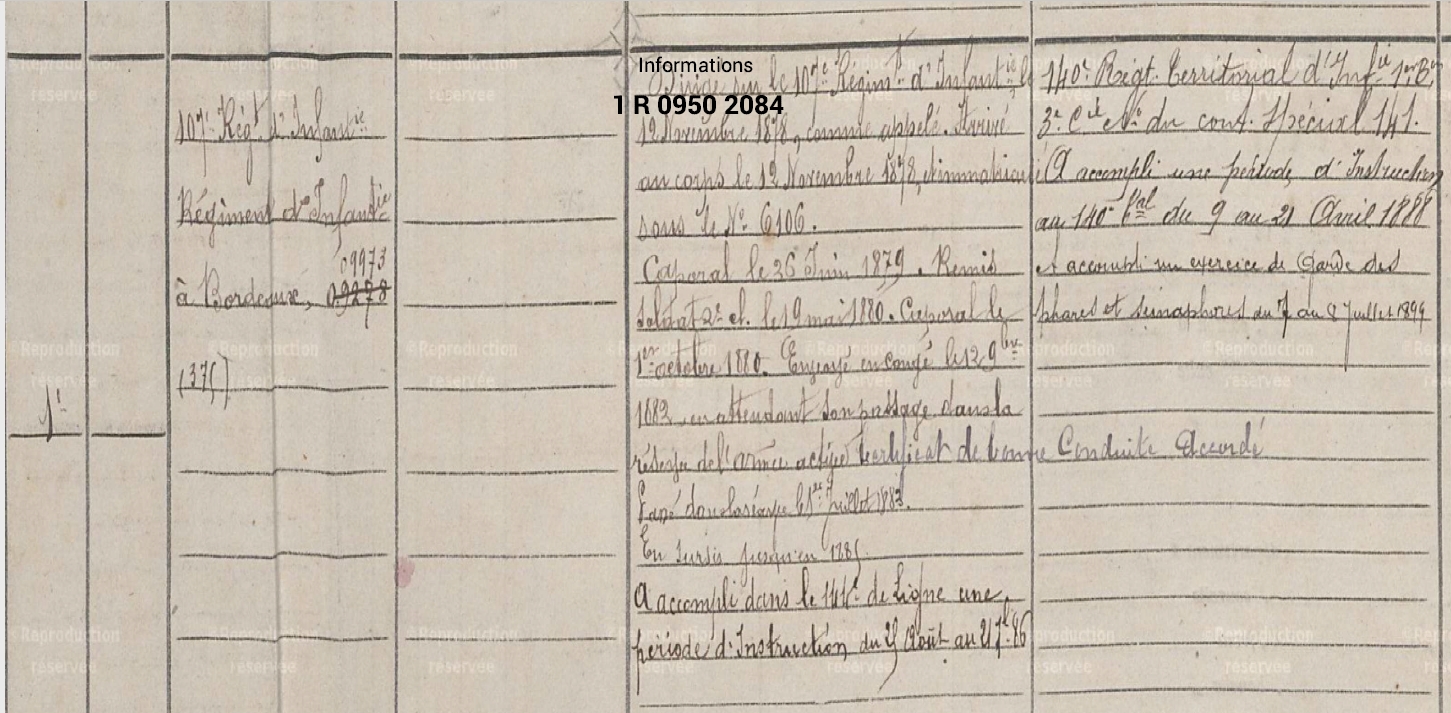 107e Régt d'Infantie
Régiment d'Infantie
09973
à Bordeaux, 09278
(375)
1
Informations
1 R 0950 2084
Dirigé sur le 107e Régimt d'Infantie, le
12 Novembre 1878, comme appelé. Arrivé
au corps le 12 Novembre 1878, et immatriculé
sous le No 6106.
Caporal le 26 Juin 1879. Remis
soldat 2e cl. le 19 mai 1880. Caporal le
1er octobre 1880. Envoyé en congé le 12 9bre
1882 en attendant son passage dans la
réserve de l'armée active Certificat de bonne Conduite Accordé
Passé dans la réserve le 1er Juillet 1883.
En sursis jusqu'en 1885.
A accompli dans le 144e de Ligne une
période d'Instruction du 25 Août au 21 7b 86
140e Régt. Territorial d'Infie 1er Bon
3e Cie No du cont. Spécial 141.
A accompli une période d'Instruction
au 140e tal du 9 au 21 Avril 1888
et accompli un exercice de Garde des
phares et sémaphores du 7 au 8 Juillet 1899
©Reproduction
réservée